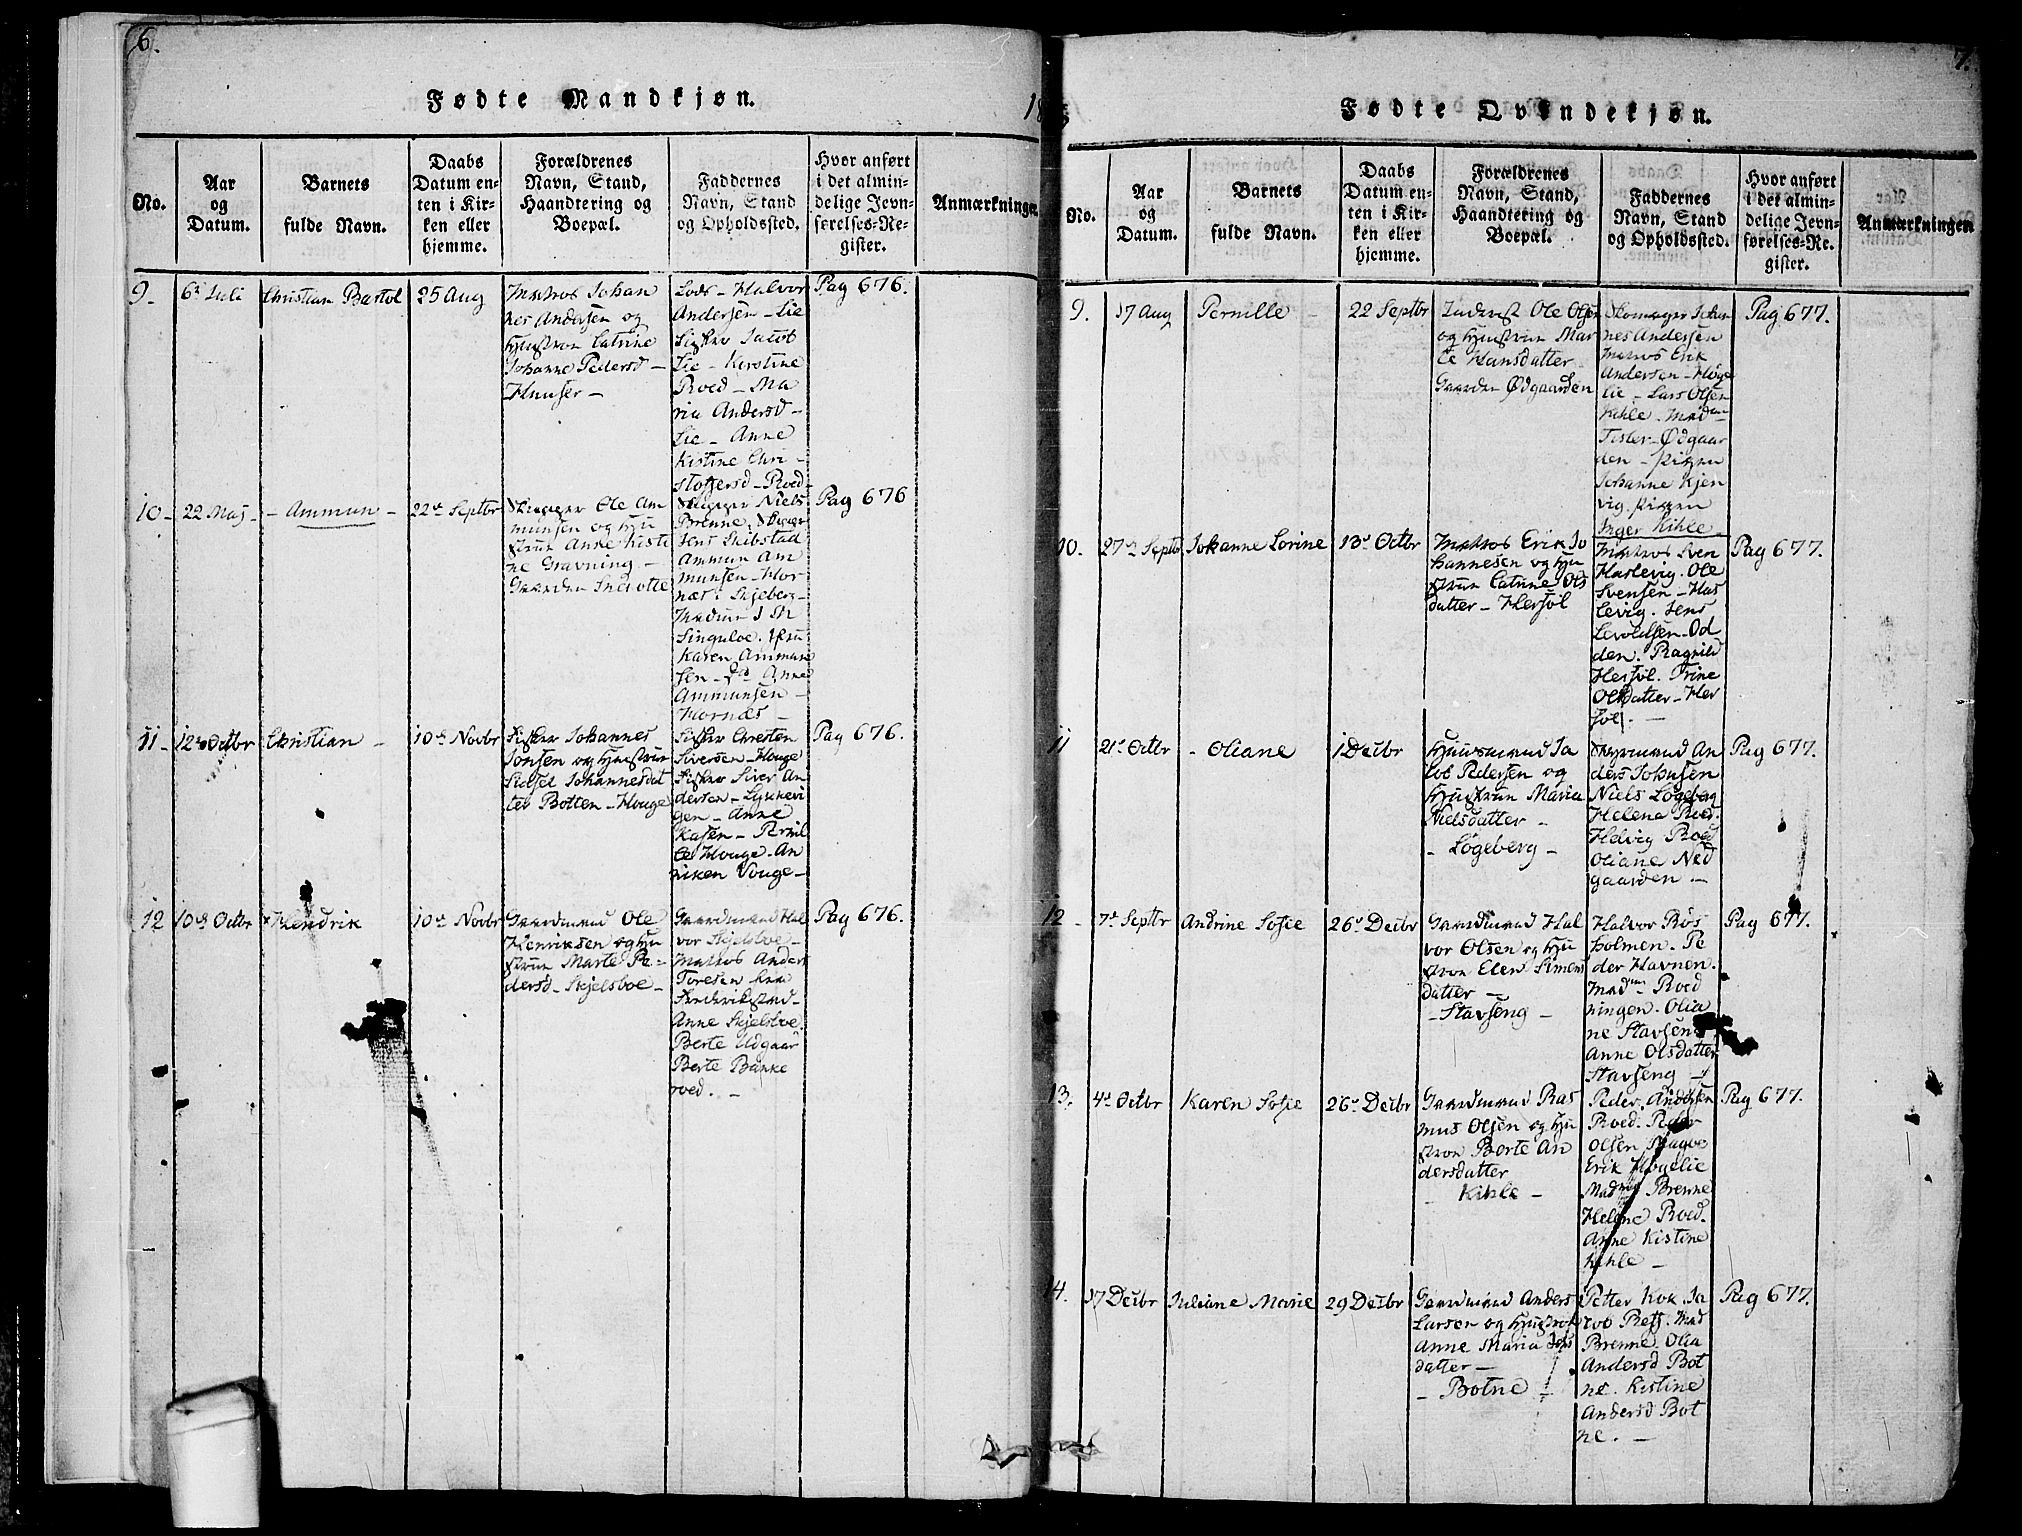 6.
Fødte Mandkjøn.
No.
Aar
og
Datum.
Barnets
fulde Navn.
Daabs
Datum en-
ten i Kir-
ken eller
hjemme.
Forældrenes
Navn, Stand,
Haandtering og
Boepæl.
Faddernes
Navn, Stand
og Opholdssted.
Hvor anført
i det almin-
delige Jevn-
førelses-Re-
gister.
Anmærkninger
9.
6t Juli
Christian Bartol
25 Aug
Matros Johan
nes Andersen og
Hustrue Catrine
Johanne Pedersd –
Huuser –
Lods – Halvor
Andersen – Lie
Fisker Jacob
Lie – Kirstine
Roed – Ma
ria Andersd –
Lie – Anne
Kistine Chri –
stoffersd – Roed –
Pag 676.
10 –
22 Maj –
– Ammun –
22de Septbr
Skipper Ole Am
munsen og Hu
strue Anne Kisti
ne Gravning –
Gaarden
Skipper Niels
Brenne. Skipper
Jens Skibstad
Ammun Am
munsen – Hor
næs i Skjeberg –
Madam
Singuloe. Fru
Karen Ammun
sen – Anne
Ammunsen –
Hornæs –
Pag 676
11 –
12te Octbr
Christian –
10de Novbr
Fisker Johannes
Jonsen og Hustrue
Sidsel Johannesdat
ter Botten – Houge
Fisker Christen
Siversen – Houge
Fisker Siver An
dersen – Lykkevi
gen – Anne
Kasen – Pernil
le Houge – An
niken Vouge –
Pag 676.
12
10de Octbr
Hendrik
10de Novbr
Gaardmand Ole
Henriksen og Hu
strue Marte Pe –
dersd – Skjelsboe –
Gaardmand Hal
vor Skjelsboe –
Matros Anders
Toresen fra
Frederikstad –
Anne Skjelsboe.
Berte Udgaar
Berte Bakke
roed. –
Pag 676.
7.
Fødte Qvindekjøn.
No.
Aar
og
Datum.
Barnets
fulde Navn.
Daabs
Datum en-
ten i Kir-
ken eller
hjemme.
Forældrenes
Navn, Stand,
Haandtering og
Boepæl.
Faddernes
Navn, Stand
og Opholdssted.
Hvor anført
i det almin-
delige Jevn-
førelses-Re-
gister.
Anmærkningen
9.
17 Aug
Pernille –
22 Septbr
Inderst Ole Olsen
og Hustrue Mar
te Hansdatter –
Gaarden Ødgaarden
Skomager Johan
nes Andersen
Matros Erik
Andersen – Høge
lie – Lars Olsen
Kihle – Madam
Tisler – Ødgaar
den – Pigen
Johanne Kjen
vig. Pigen
Inger Kihle –
Pag 677.
10.
27de Septbr
Johanne Lorine
13de Octbr
Matros Erik Jo
hannesen og Hu
strue Catrine Ols
datter – Hersøl
Matros Sven
Haslevig. Ole
Svensen – Has
levig. Jens
Levoldsen – Od
den. Ragnild
Hersøl. Trine
Olsdatter – Her
søl. –
Pag 677.
11
21de Octbr
– Oliane
1 Decbr
Huusmand Ja
cob Pedersen og
Hustrue Maria
Nielsdatter –
– Løgeberg –
Styrmand An
ders Johnsen
Niels Løgeberg
Helena Roed.
Helvig Roed
Oliane Ned
gaarden –
Pag 677.
12 –
7de Septbr
Andrine Sofie
26de Decbr
Gaardmand Hal
vor Olsen og Hu
strue Elen Simens
datter –
– Stavseng –
Halvor Røs
holmen. Pe
der Havnen.
Madm Roed
ningen. Olia
ne Stavseng
Anne Olsdatter
Stavseng –
Pag 677.
13.
4de Octbr
Karen Sofie
26de Decbr
Gaardmand Ras
mus Olsen og Hu
strue Berte An
dersdatter
– Kihle –
Peder Andersen
Roed. Peder
Olsen
Erik Høgelie
Madm Brenne
Helene Roed.
Anne Kistine
Kihle –
Pag 677.
14.
17 Decbr
Juliane Marie
29 Decbr
Gaardmand Anders
Larsen og Hustrue
Anne Maria Jens
datter –
– Botne –
Petter Kok. Ja
cob Mad
Brenne. Olia
Andersd Bot
ne. Kistine
Andersd Bot
ne. –
Pag 677.